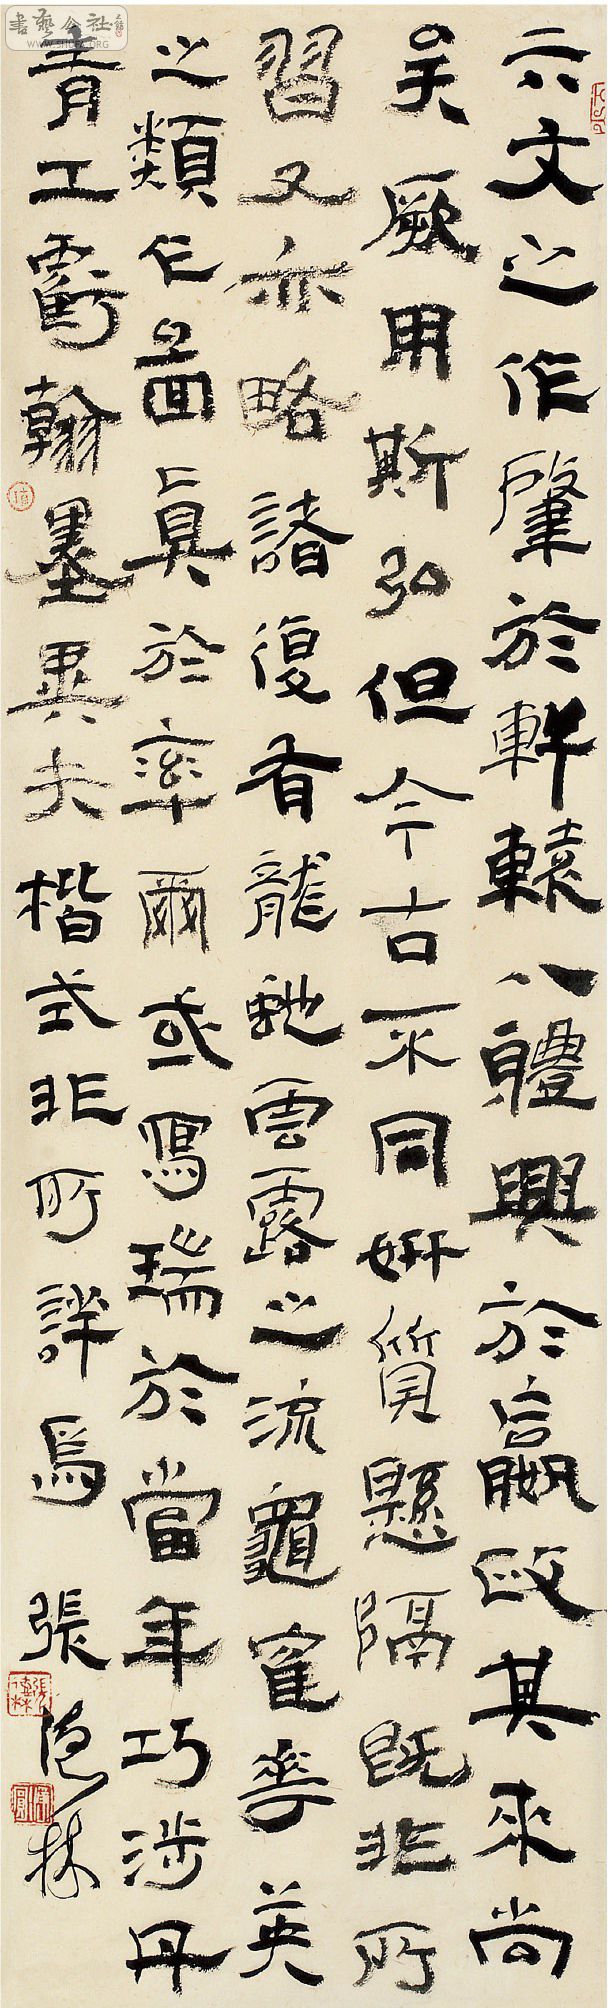 書藝公社
WWW.SHUFA.ORG
六文之作肇於軒轅八體興於嬴政其來尚
矣厥用斯弘但今古不同妍質懸隔既非所
習又亦略諸復有龍虵雲露之流龜寉華英
之類乍啚真於率爾或寫瑞於當年巧涉丹
青工虧翰墨異夫楷式非所詳焉 張德林